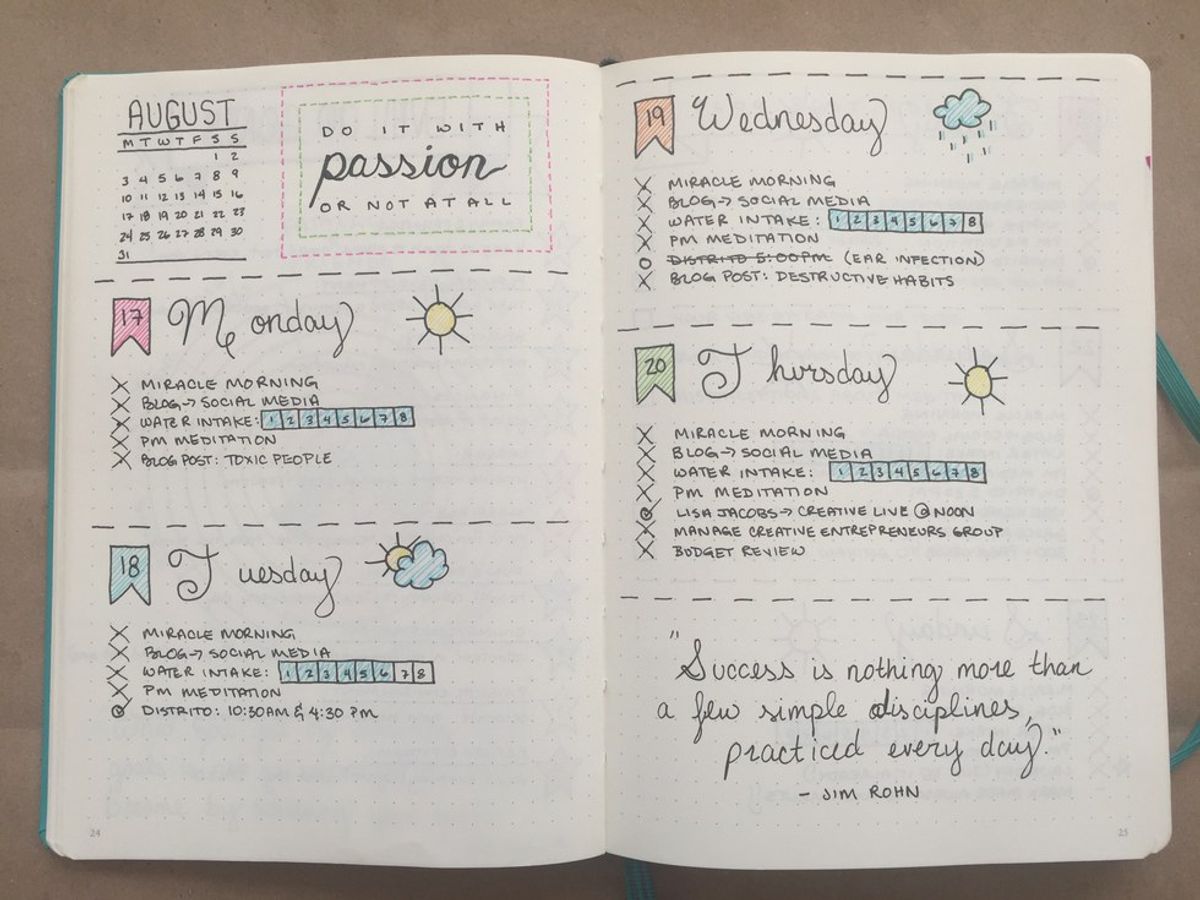 AUGUST
M T W T F S S
1 2
3 4 5 6 7 8 9
10 11 12 13 14 15 16
17 18 19 20 21 22 23
24 25 26 27 28 29 30
31
DO IT WITH
passion
OR NOT AT ALL
17 Monday
X MIRACLE MORNING
X BLOG → SOCIAL MEDIA
X WATER INTAKE: 1 2 3 4 5 6 7 8
X PM MEDITATION
X BLOG POST: TOXIC PEOPLE
18 Tuesday
X MIRACLE MORNING
X BLOG → SOCIAL MEDIA
X WATER INTAKE: 1 2 3 4 5 6 7 8
X PM MEDITATION
DISTRITO: 10:30AM & 4:30 PM
24
19 Wednesday
X MIRACLE MORNING
X BLOG → SOCIAL MEDIA
X WATER INTAKE: 1 2 3 4 5 6 7 8
X PM MEDITATION
O DISTRITO 5:00PM (EAR INFECTION)
X BLOG POST: DESTRUCTIVE HABITS
20 Thursday
X MIRACLE MORNING
X BLOG → SOCIAL MEDIA
X WATER INTAKE: 1 2 3 4 5 6 7 8
X PM MEDITATION
LISA JACOBS → CREATIVE LIVE @ NOON
X MANAGE CREATIVE ENTREPRENEURS GROUP
X BUDGET REVIEW
"Success is nothing more than
a few simple disciplines,
practiced every day."
- JIM ROHN
25